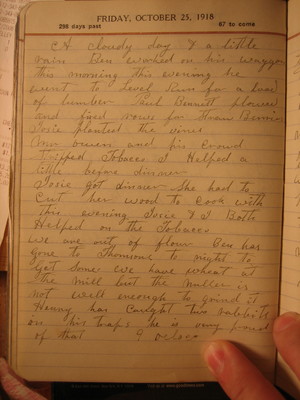 FRIDAY, OCTOBER 25, 1918
298 days past 67 to come
A cloudy day & a little
rain Ben worked on his waggon
this morning this evening he
went to Level Run for a load
of lumber Paul Bennett plowed
and fixed rows for Straw Berries
Josie planted the vines
Ann owens and his Crowd
Stripped Tobacco I Helped a
little before dinner
Josie got dinner She had to
Cut her wood to Cook with
this evening Josie & I Both
Helped on the Tobacco
we are out of flour Ben has
gone to to night to
get Some we have wheat at
the mill but the miller is
not well enough to grind it
Henry has Caught two rabbits
in his traps he is very proud
of that 9 oclock